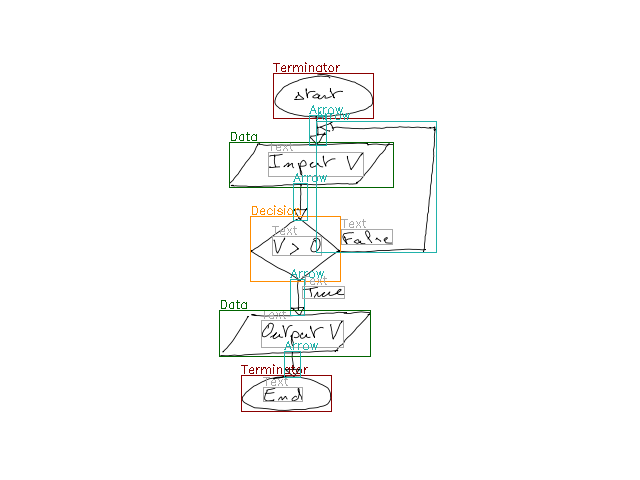 Terminator
start
Arrow
Arrow
Data
Text
Input V
Arrow
Decision
Text
V > 0
Text
False
Arrow
Text
True
Data
Text
Output V
Arrow
Terminator
Text
End